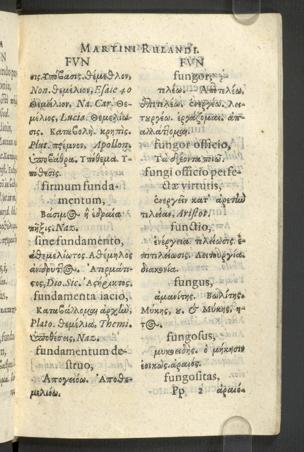 MARTINI RULANDI.
FVN
σις. Ὑπόβασις. θέμεθλον,
Non. θεμέλιον, Esaie 40
θεμείλιον, Na. Car. Θε-
μέλιος, Lucia. Θεμελίω-
σις. Καταβολή. κρηπίς.
Plut. πρέμνον, Apollon.
Ὑποβάθρα. Ὑπόθεμα. Ὑ-
πόθεσις.
firmum funda-
mentum,
Βάσιμος ἡ ἑδραία
πῆξις. Naz.
sine fundamento,
ἀθεμελίωτος. Ἀθέμηλος
ἀνίδρυτος. Ἀτερμάτι-
τος, Dio. Sic. Ἀςήρικτος.
fundamenta iacio,
Καταβάλομαι ἀρχὴν,
Plato. θεμέλια, Themi.
ὑποθέσεις, Naz.
fundamentum de-
struo,
Απογειόω. Ἀποθε-
μελιόω.
FVN
fungor,
τελέω. Ἀποτελέω,
ἐπιτελέω. ἐνεργέω. λει-
τυργέω. ἐργάζομαι. ἀπ-
αλλάττομαι.
fungor officio,
Τὰ δέοντα ποιῶ.
fungi officio perfe-
ctæ virtutis,
ἐνεργεῖν κατ' ἀρετὴν
τελείαν, Aristot.
functio,
ἐνέργεια. τελείωσις. ἐ-
πιτελείωσις. Λειτουργία.
διακονία.
fungus,
ἀμανίτης. Βωλίτης.
Μύκης, ȣ. & Μύκης, η-
τος.
fungosus,
μυκοειδής. ὁ μύκησιν
ἐοικώς. ἀραιός.
fungositas,
Pp 2 ἀραιό-